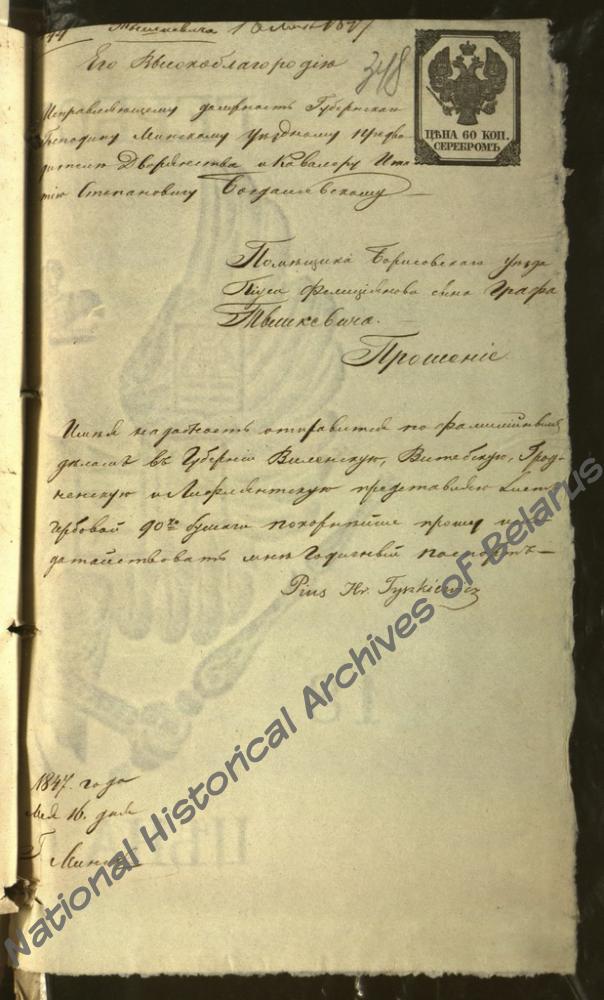 Тышкевича 16 Мая 1847
348
Его Высокоблагородію
ЦѢНА 60 КОП.
СЕРЕБРОМЪ.
Исправляющему должность Губернскаго
Господину Минскому уѣздному предво-
дителю Дворянства и Кавалеру
Степановичу Богдашевскому
Помѣщика Борисовского уезда
Піуса Фелиціянова сына Графа
Тышкевича.
Прошеніе
Имея надобность отправится по фамилійным
делам въ Губерніи Виленскую, Витебскую, Грод-
ненскую и Лифляндскую представляю листъ
гербовой 90 ко бумаги покорнѣйше прошу
датайствовать мне Годичный паспортъ
Pius Hr. Tyszkiewicz
1847. года
Мая 16. дня
Г Минскъ
National Historical Archives of Belarus